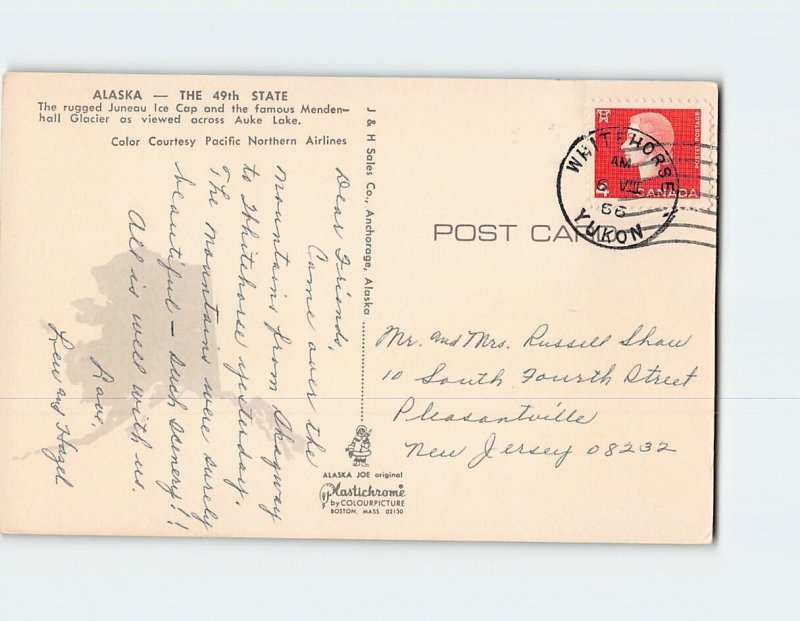 ALASKA — THE 49th STATE
The rugged Juneau Ice Cap and the famous Menden-
hall Glacier as viewed across Auke Lake.
Color Courtesy Pacific Northern Airlines
Dear Friends,
Came over the
mountains from Skagway
to Whitehorse yesterday.
The mountains were surely
beautiful — such scenery!!
All is well with us.
Love,
Lew and Hazel
J & H Sales Co., Anchorage, Alaska
ALASKA JOE original
Plastichrome
by COLOURPICTURE
BOSTON, MASS. 02130
POST CARD
WHITEHORSE
AM
6 VII
66
YUKON
POSTES POSTAGE
4 CANADA
Mr. and Mrs. Russell Shaw
10 South Fourth Street
Pleasantville
New Jersey 08232